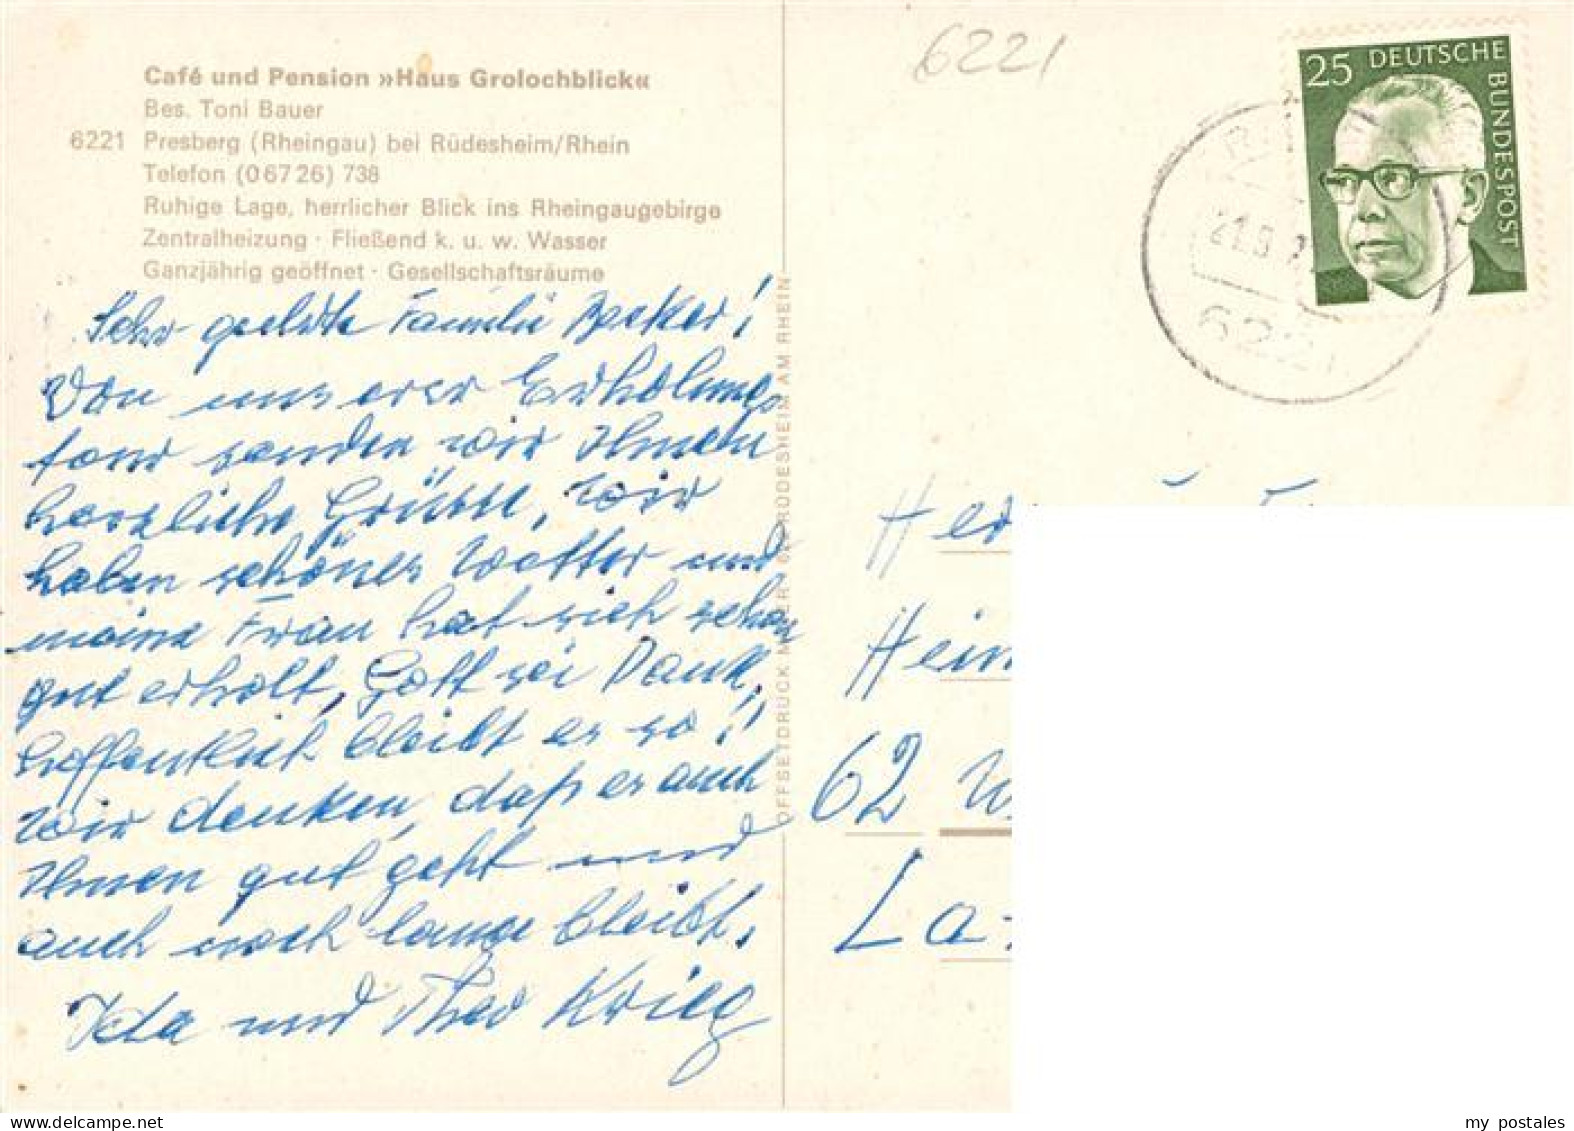 6221
Café und Pension »Haus Grolochblick«
Bes. Toni Bauer
6221 Presberg (Rheingau) bei Rüdesheim/Rhein
Telefon (0 67 26) 738
Ruhige Lage, herrlicher Blick ins Rheingaugebirge
Zentralheizung · Fließend k. u. w. Wasser
Ganzjährig geöffnet · Gesellschaftsräume
25 DEUTSCHE
BUNDESPOST
6221
Sehr geehrte Familie Becker!
Von unserer Erholungs
senden wir Ihnen
herzliche Grüsse, Wir
haben schönes Wetter und
meine Frau hat sich schon
gut erholt, Gott sei Dank,
hoffentlich bleibt es so!,
Wir denken, daß es auch
Ihnen gut geht und
auch noch lange bleibt,
Ida und Theo Krieg
OFFSETDRUCK MEIER RÜDESHEIM AM RHEIN
Her
Hein
62 W
La-
delcampe.net
my postales